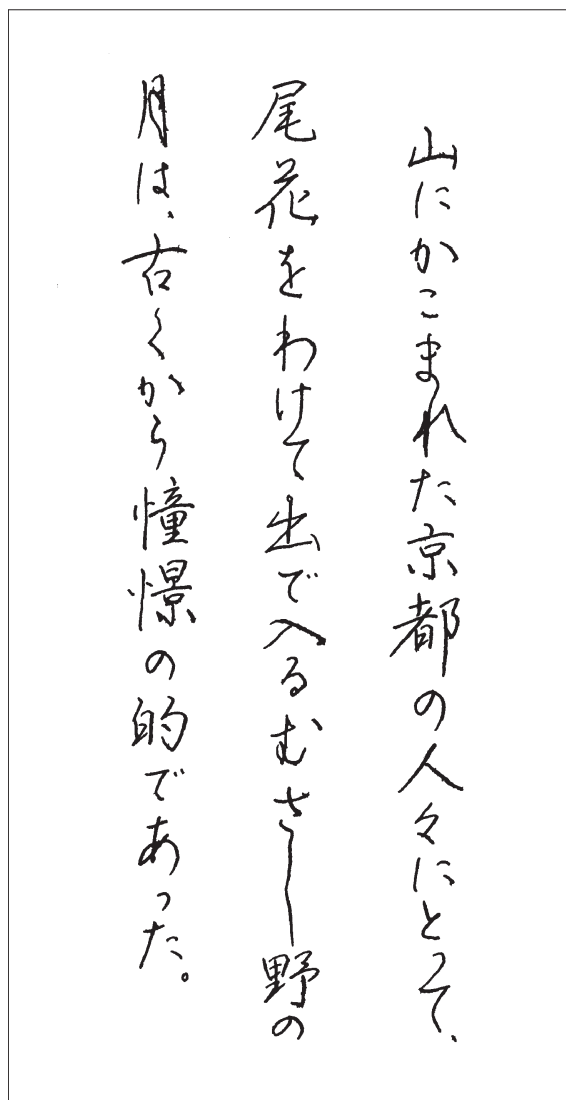 山にかこまれた京都の人々にとって、
尾花をわけて出で入るむさし野の
月は、古くから憧憬の的であった。